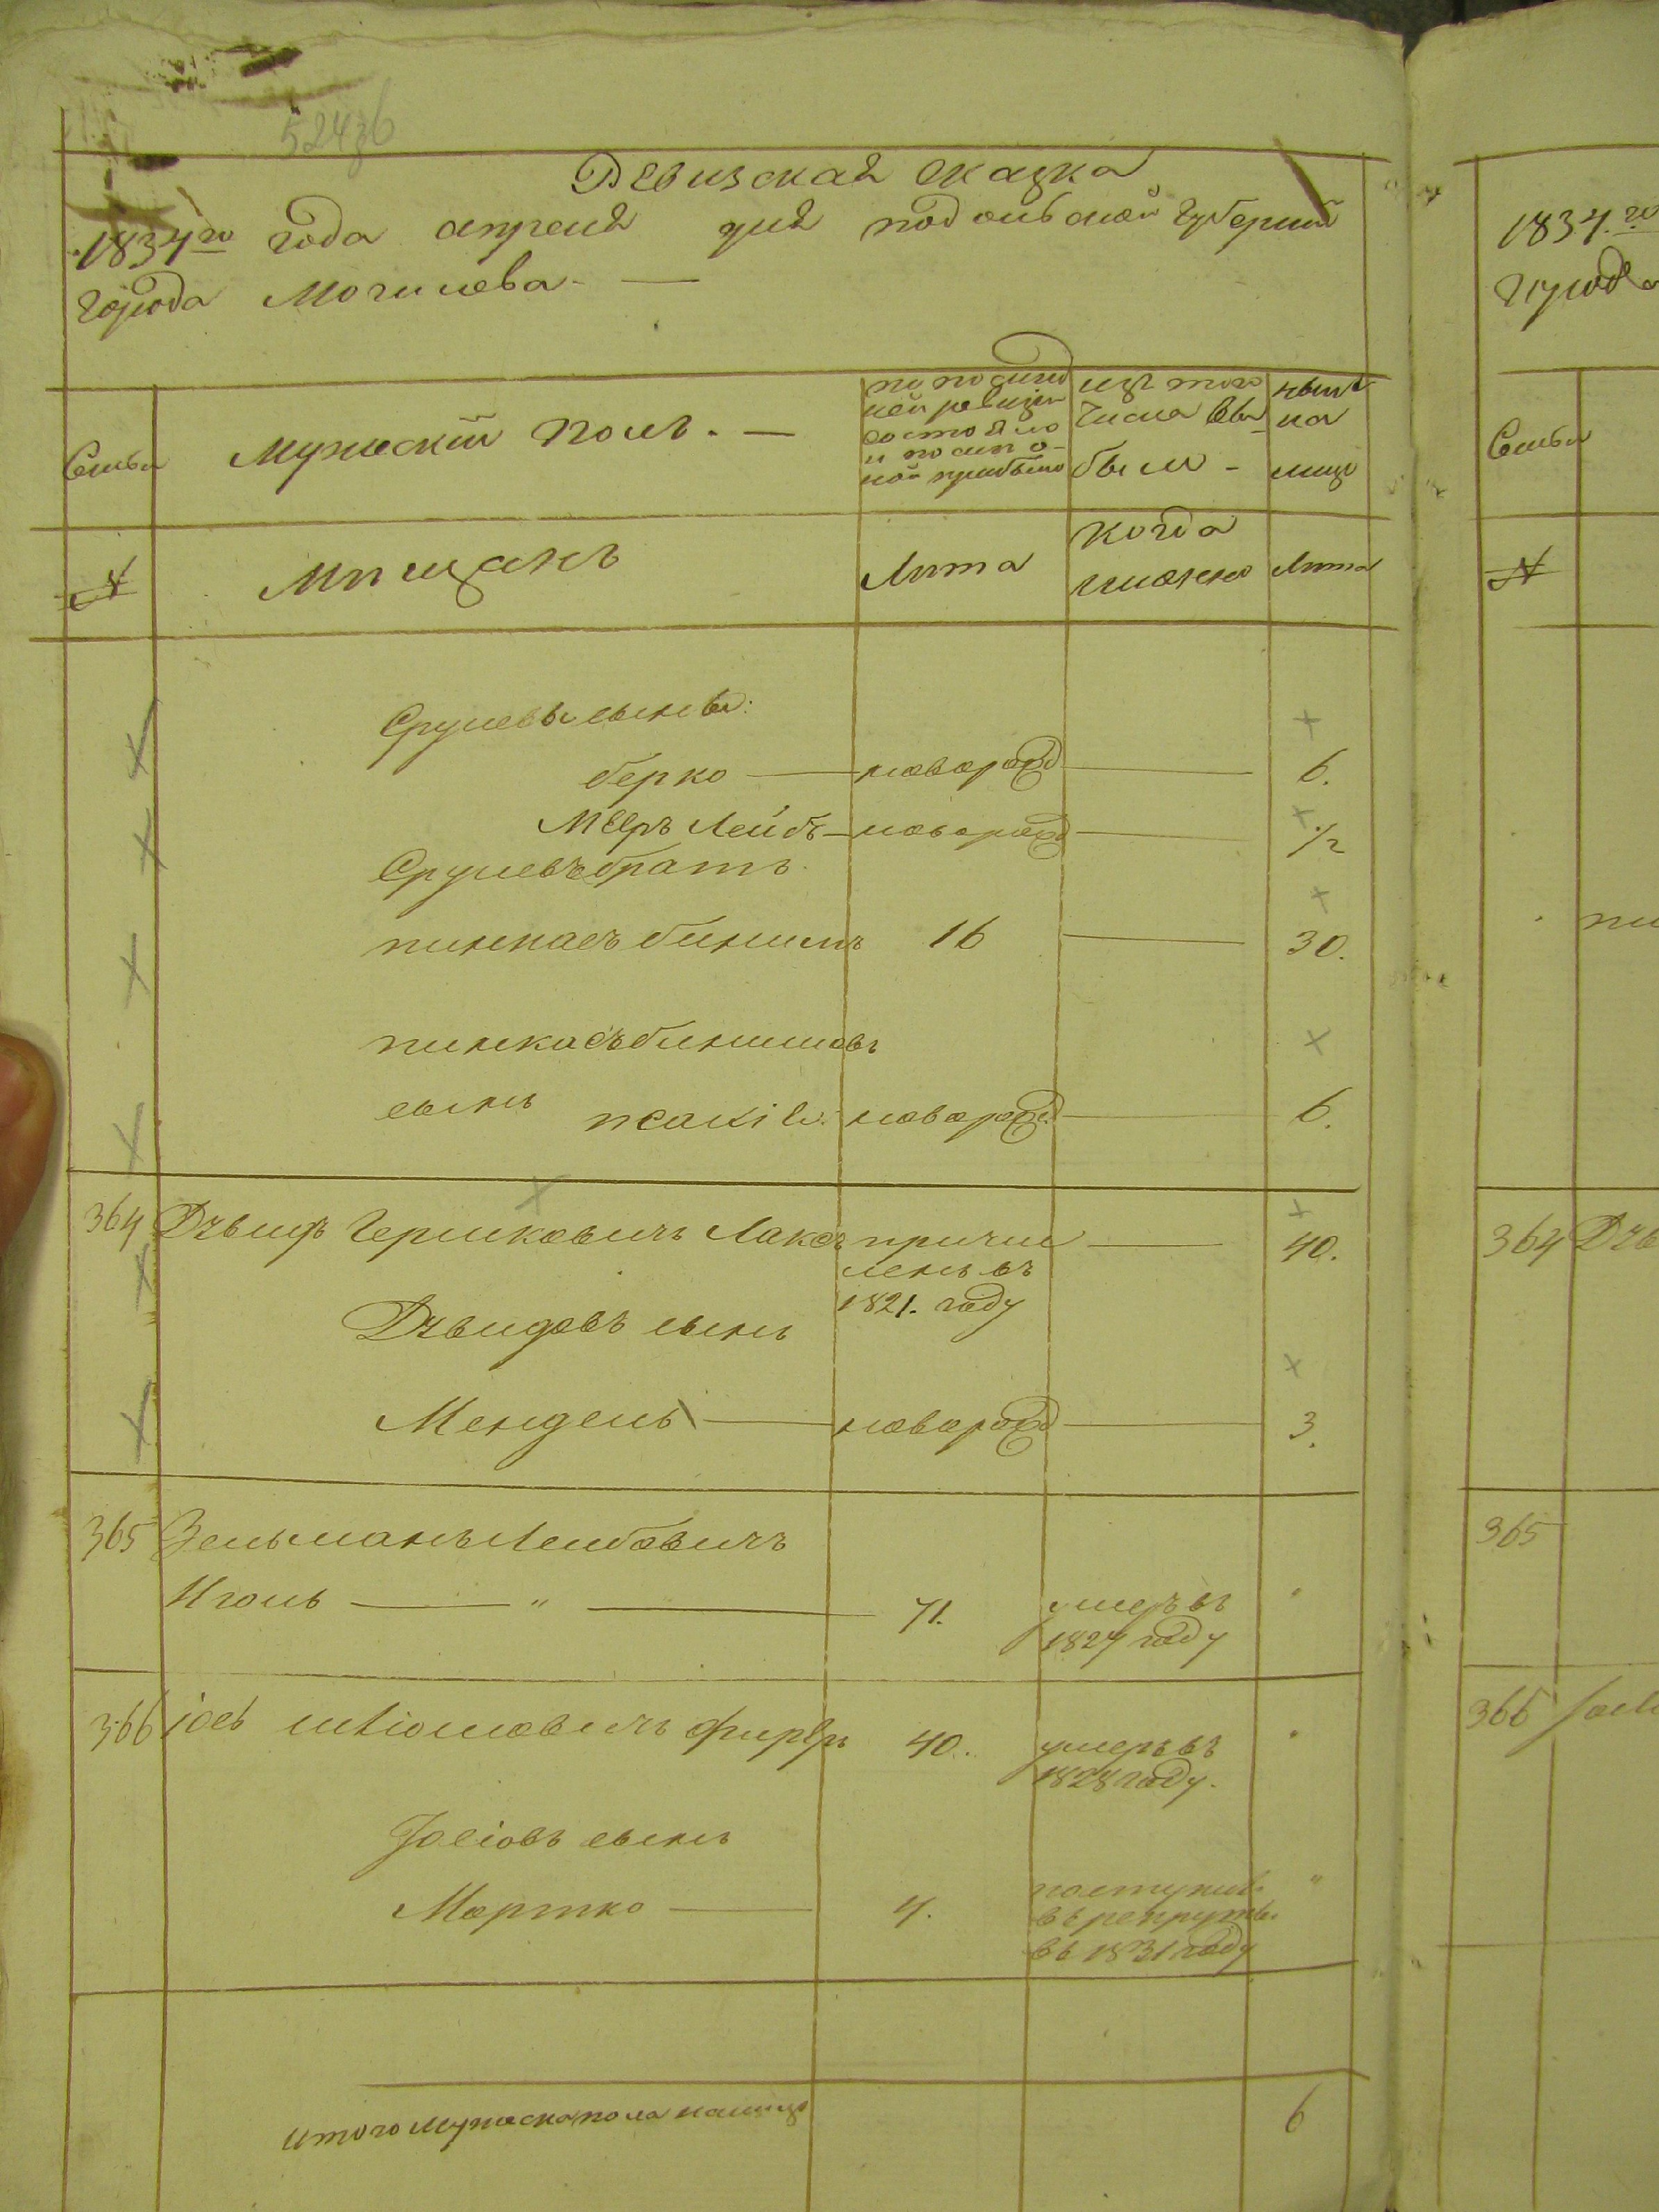 524 36
Ревизская сказка
1834го года апреля дня подольской губернии
города Могилева
Семьи
Мужеский Полъ.
по послед
ней ревизiи
состояло
и после о-
ной прибыло
изъ того
числа вы
было
ныне
на
лицо
№
Мещанъ
Лета
Когда
имянно
Лета
Срулевы сыны:
берко новорожд 6.
Меер Лейбъ новорожд 1/2
Срулевъ братъ
пинкасъ бинишъ 16 30.
пинкасъ бинишовъ
сынъ новорожд 6.
364 Дувидъ Гершковичъ Лаксъ причи 40.
сленъ въ
1821. году
Дувидовъ сынъ
Мендель новорожд 3.
365 Зельманъ Лейбовичъ
Иголь " 71. умеръ въ "
1827 году
366 Іось шліомовичъ фирер 40. умеръ въ "
1828 году.
Іосіовъ сынъ
Мортко 4. поступил "
въ рекруты
въ 1831 году
итого мужеска пола налицо 6
1834.го
города
Семьи
№
пи
364 Дув
365
366 Іось